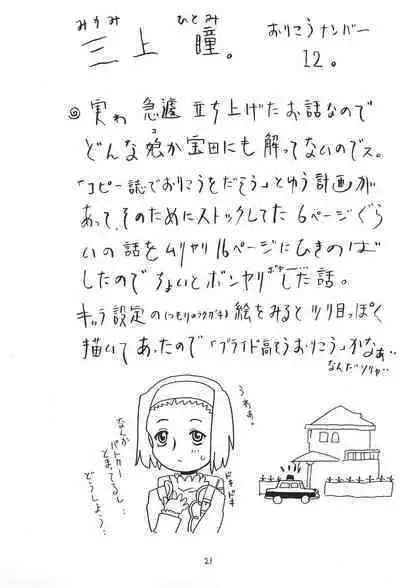 みかみ ひとみ
三上 瞳。
おりこうナンバー
12。
◎実わ急遽立ち上げたお話なので
どんな娘か宝田にも解ってないのでス。
コ
「コピー誌でおりこうをだそう」とゆう計画が
あって、そのためにストックしてた6ページぐら
いの話をムリヤリ16ページにひきのばし
したのでちょいとボンヤリした話。
ボヤー…
キャラ設定の(つもりのラクガキ)絵をみるとツリ目っぽく
描いてあったので「プライド高そうおりこう」かなぁ…
なんだソリャ…
うわぁ。
なんか
パトカー
とまってるし…
どうしよう…
ドキ
ドキ
21